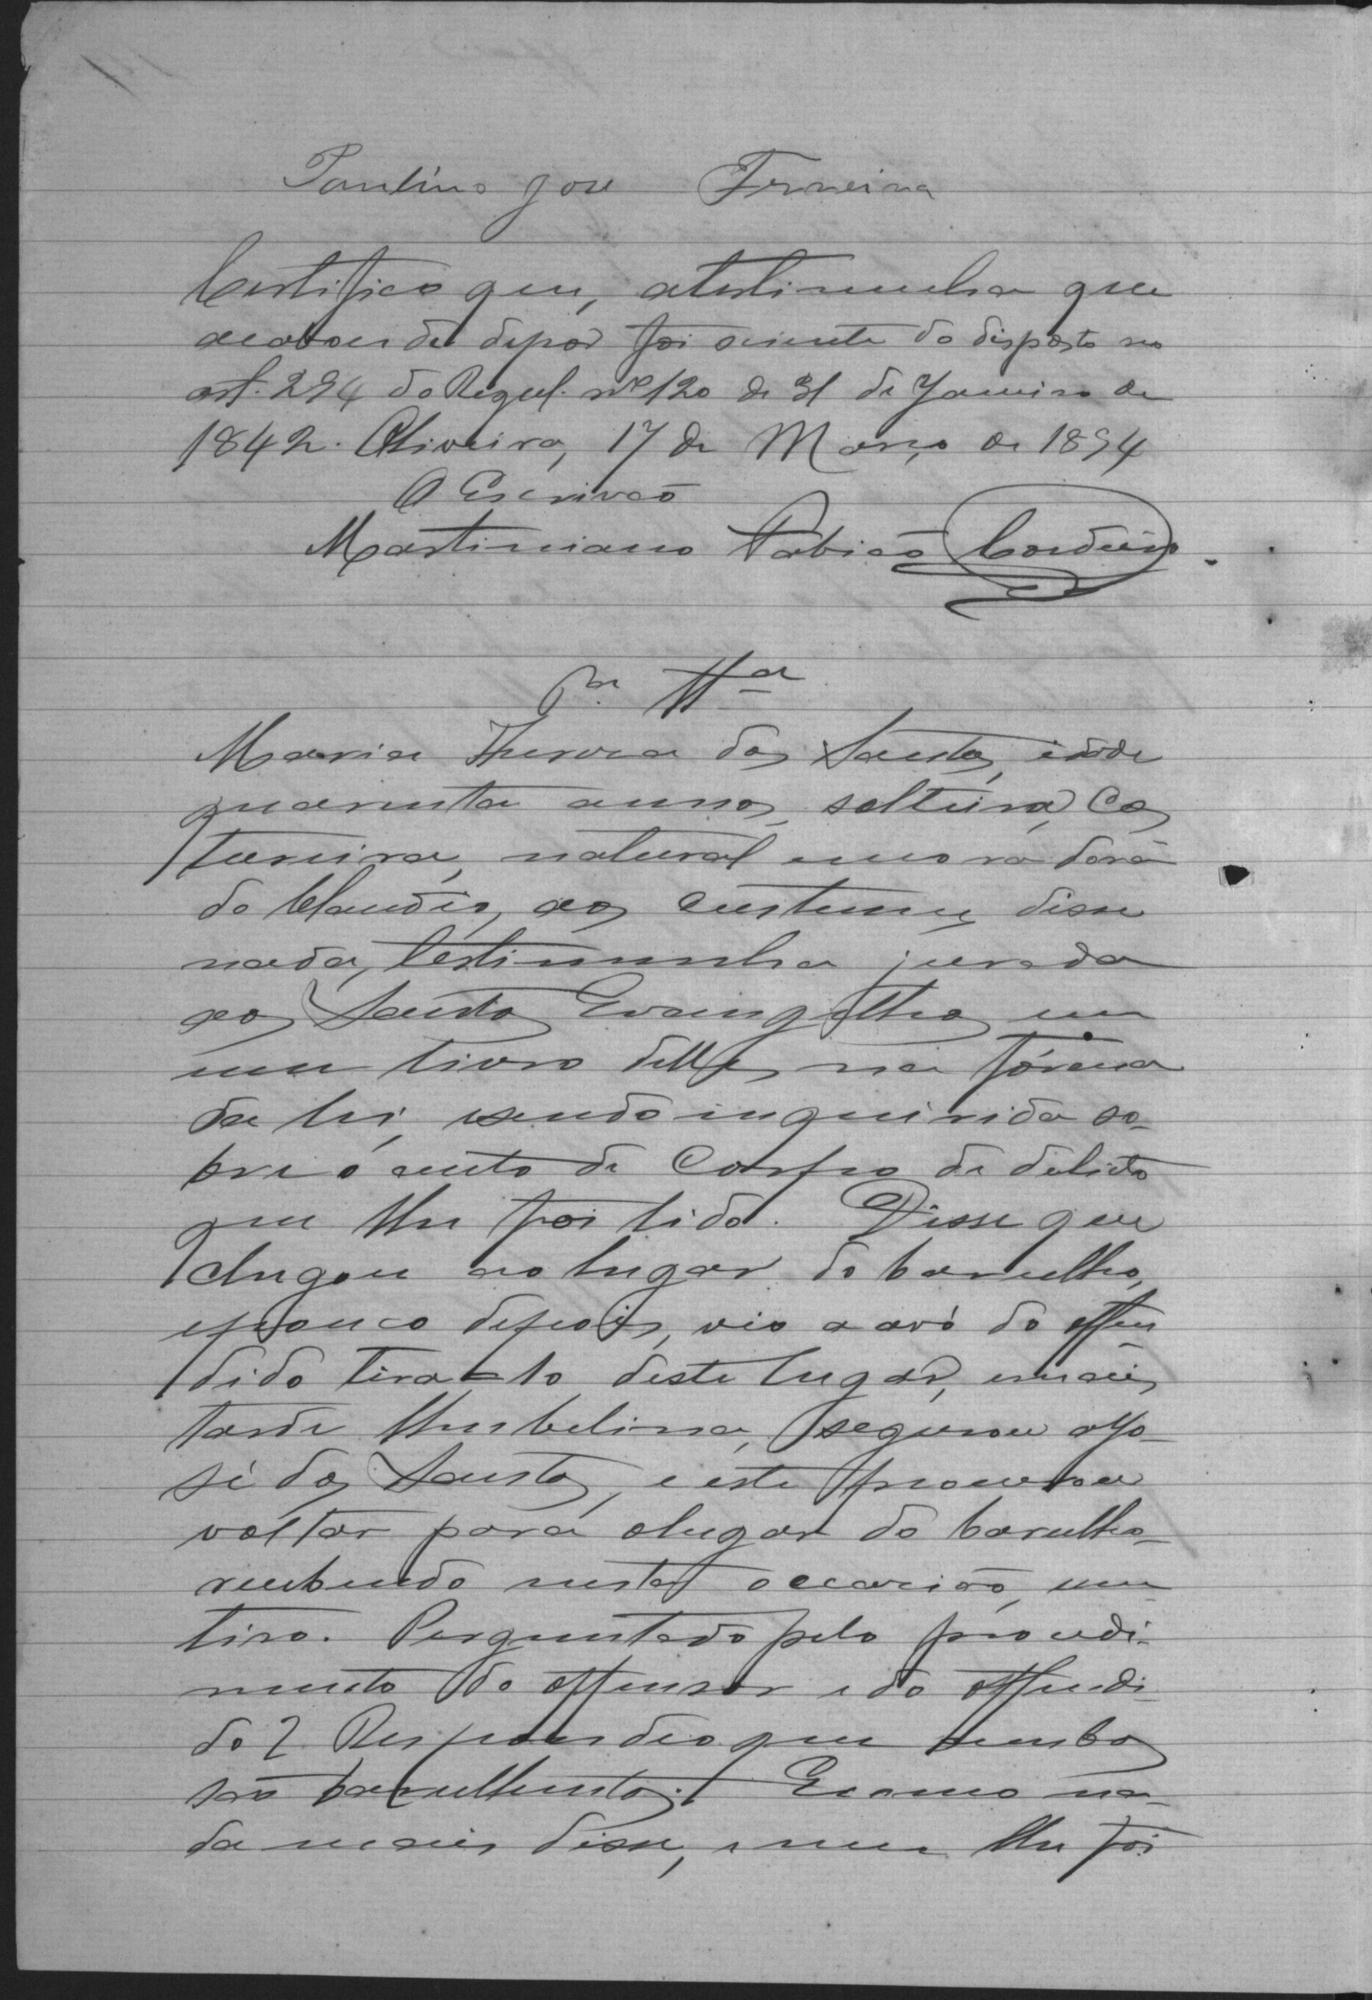 Paulino Jose Ferreira
Certifico que, atestimunha que
acabou de depor foi sciente do disposto no
art. 294 do Regul. nº 120 de 31 de Janeiro de
1842. Oliveira, 17 de Março de 1894
O Escrivão
Martiniano Fabião Cordeiro
Ttª
Maria Thereza dos Santos, idade
quarenta annos, solteira, Cos
tureira, natural e moradora
do Claudio, aos custumes disse
nada, testimunha jurada
aos Santos Evangelhos em
um livro delles na fórma
da lei, sendo inquirida so-
bre o auto de Corpo de delicto
que lhe foi lido. Disse que
chegou ao lugar do barulho,
e pouco depois, vio a avó do offen
dido tiral-o deste lugar, e mais
tarde Umbelina, segurou a Jo-
sé dos Santos, e este procurou
voltar para o lugar do barulho-
recebendo nesta occasião, um
tiro. Perguntado pelo procedi-
mento do offensor e do offendi-
do? Respondeo que ambos
são barulhentos. E como na-
da mais disse, e nem lhe foi